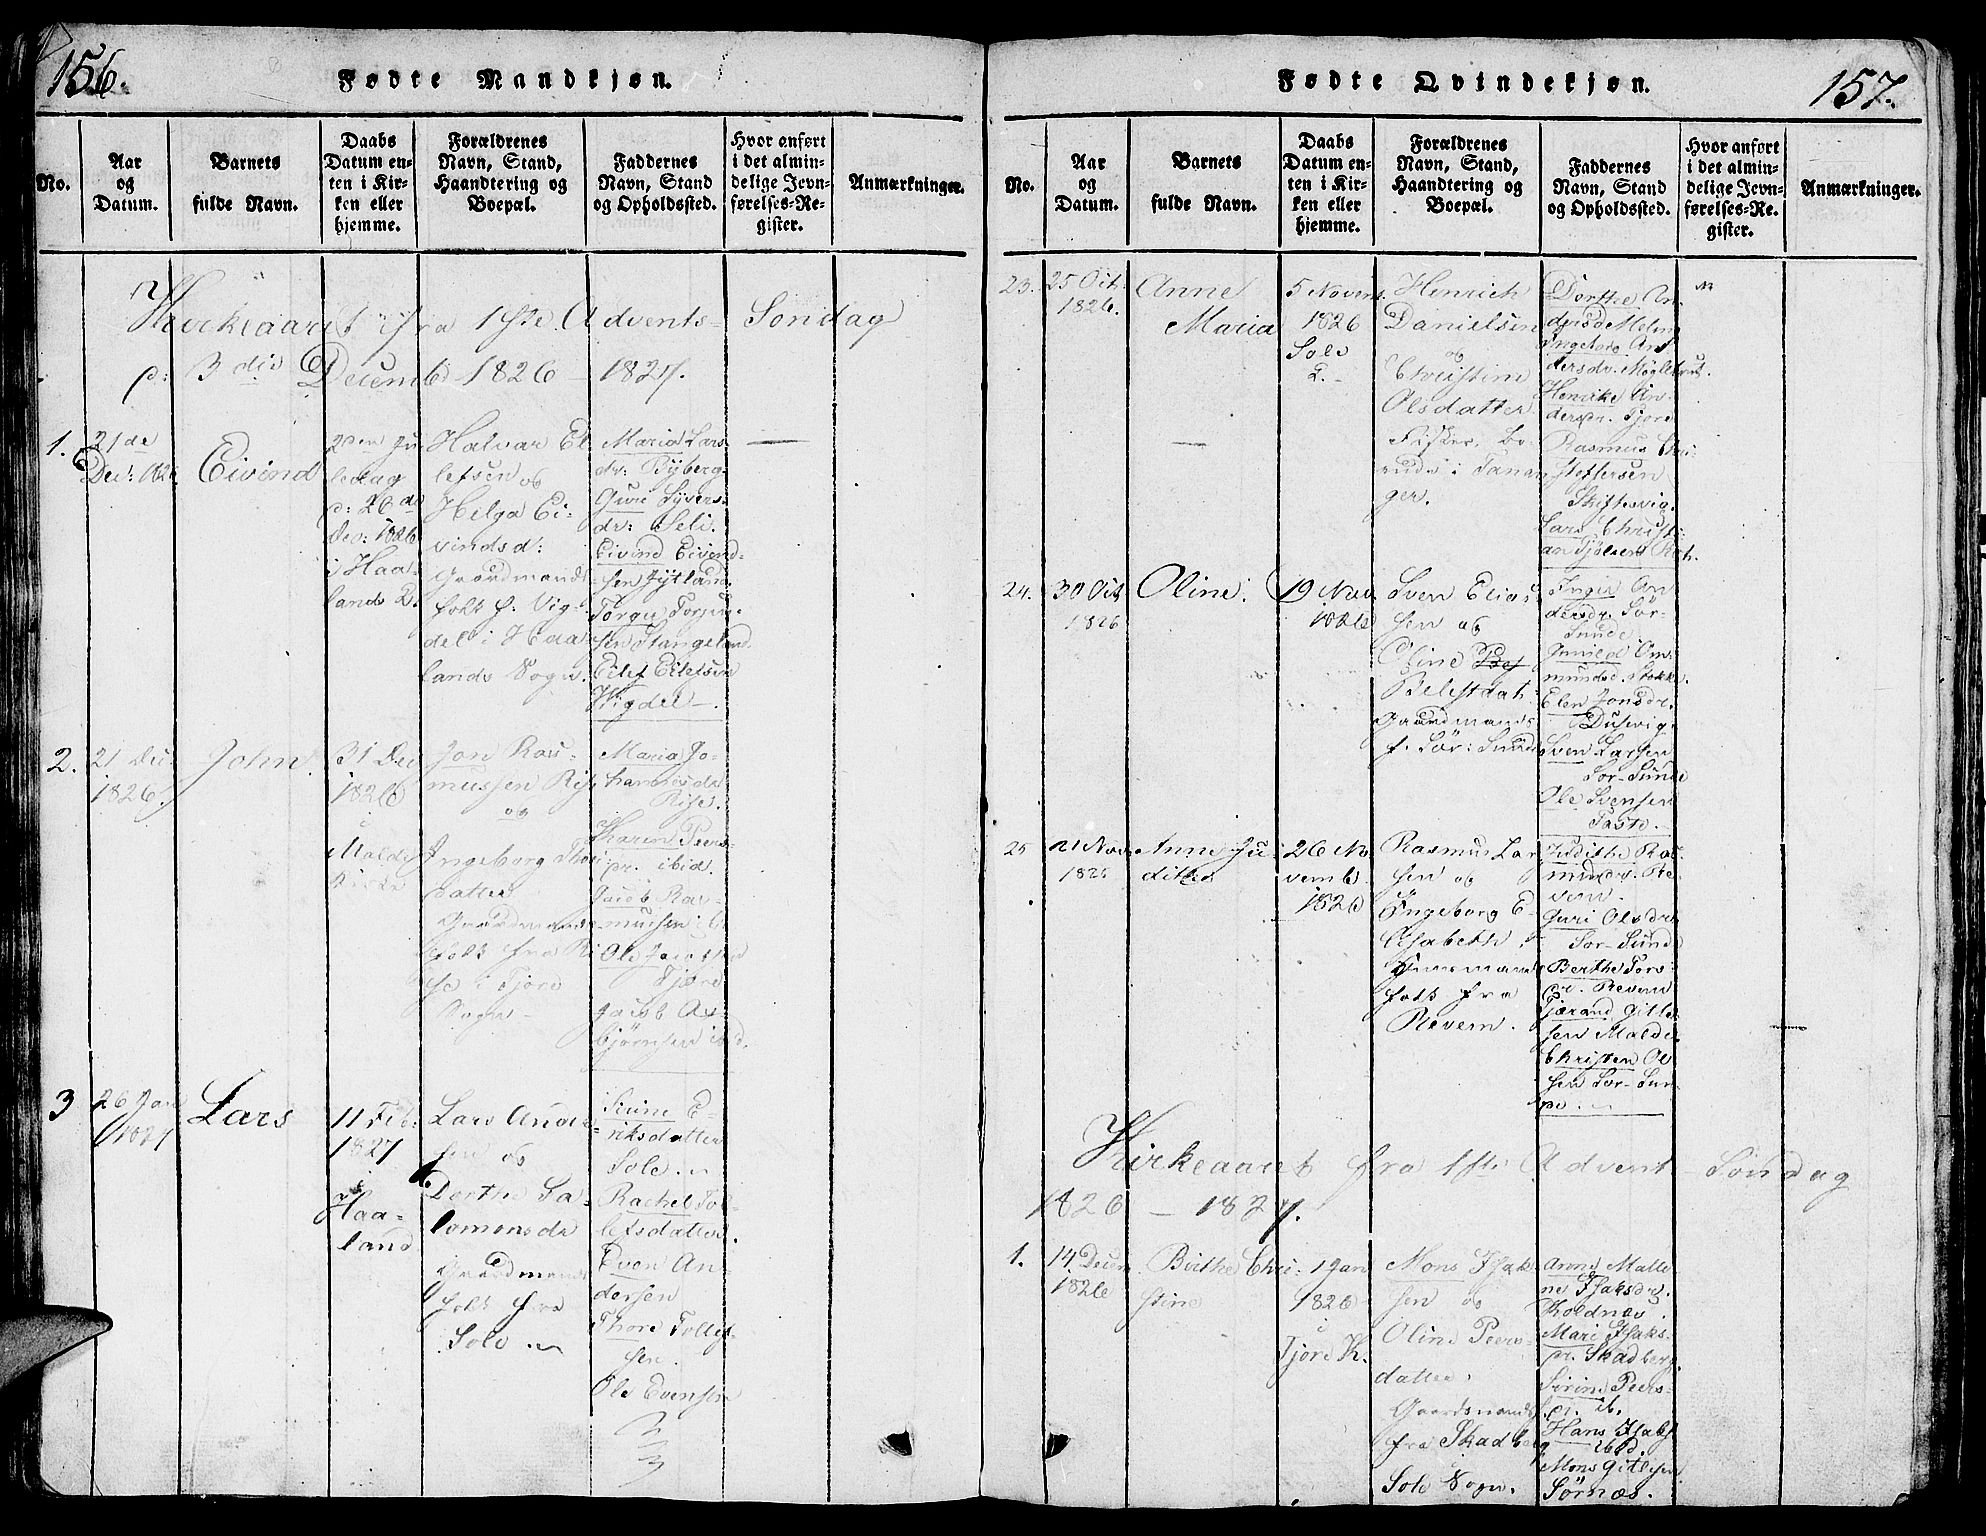 156.
Fødte Mandkjøn.
No.
Aar
og
Datum.
Barnets
fulde Navn.
Daabs
Datum en-
ten i Kir-
ken eller
hjemme.
Forældrenes
Navn, Stand,
Haandtering og
Boepæl.
Faddernes
Navn, Stand
og Opholdssted.
Hvor anført
i det almin-
delige Jevn-
førelses-Re-
gister.
Anmærkninger.
Kirkeaaret fra 1ste Advents- Søndag
d: 3die Decemb 1826 - 1827.
1.
21de
Dec: 1826
Eivind
2den Ju-
ledag
d: 26de
Dec: 1826
i Haa-
lands K.
Halvar El-
lefsen og
Helga Ei-
vindsd:
Gaardmands
folk f. Vig-
del i Haa-
lands Sogn.
Maria Lars-
dr: Byberg
Guri Syvers-
dr: Seli.
Eivind Eivend-
sen Jytland.
Torger Torjer-
sen Stangeland
Eilef Eilefsen
Vigdel.
2.
21 De.
1826.
John.
31 Dec
1826
Malde
Kirke
Jon Ras-
mussen Rise
og
Ingeborg Thor
datter
Gaardmands
folk fra Ri-
se i Tjore
Sogn
Maria Jo-
hannesdr
Rise.
Karen Peers-
dr. ibid.
Jacob Ras-
mussen
Ole Jacobsen
Tjore
Jacob As-
bjørnsen ibid.
3
26 Jan
1827
Lars
11 Feb:
1827
i
Haa-
land
Lars Ander-
sen og
Dorthe Sa-
lomonsdr
Gaardmands
folk fra
Sole
Serine E-
riksdatter
Sole
Rachel Tol-
lefsdatter.
Even An-
dersen
Thore Tollef-
sen.
Ole Evensen
157.
Fødte Qvindekjøn.
No.
Aar
og
Datum.
Barnets
fulde Navn.
Daabs
Datum en-
ten i Kir-
ken eller
hjemme.
Forældrenes
Navn, Stand,
Haandtering og
Boepæl.
Faddernes
Navn, Stand
og Opholdssted.
Hvor anført
i det almin-
delige Jevn-
førelses-Re-
gister.
Anmærkninger.
23.
25 Oct.
1826.
Anne
Maria
5 Novem.
1826
Sole
K.
Henrich
Danielsen
og
Christine
Olsdatter
Fisker, bo-
ende i Tanan-
ger.
Dorthe An-
dersd Melin
Ingebor An-
dersdr. Møglebust.
Henrike An-
dersdr. Tjore
Rasmus Chri-
stoffersen
Skiftesvig.
Lars Christi-
an Tjølsen Rot.
24.
30 Oct
1826
Oline.
19 Nov
1826
Sven Elias-
sen og
Oline
Belestdat-
Gaardmands
f. Sør: Sunde
Inger An-
dersdr. Sør-
Sunde
Gunild Om-
mundsd. Stokke.
Elen Jonsdr.
Dusevig.
Sven Larsen
Sør-Sunde
Ole Svensen
Tasto.
25
21 Nov
1826
Anne Ju-
dithe
26 No-
vemb.
1826
Rasmus Lar-
sen og
Ingeborg E-
lisabeth
Huusmands
folk fra
Revem.
Judithe Ras-
musdr. Re-
vem.
Guri Olsdr
Sør-Sunde
Berthe Tors-
dr. Revem
Tjærand Gitle-
sen Malde
Christen Ol-
sen Sør-Sun-
de.
Kirkeaaret fra 1ste Advent Søndag
1826 - 1827.
1.
14 Decem
1826
Birthe Chri-
stine
1 Jan
1826
i
Tjore K.
Mons Isak-
sen og
Oline Peers-
datter.
Gaardsmandsf.
fra Skadberg
Sole Sogn.
Anne Malle-
ne Isaksdr.
Koldnæs
Mari Isaks-
dr. Skadberg.
Sirine Peers-
dr. ib.
Hans Isaks
ibid.
Mons Gitlesen
Sørnæs.